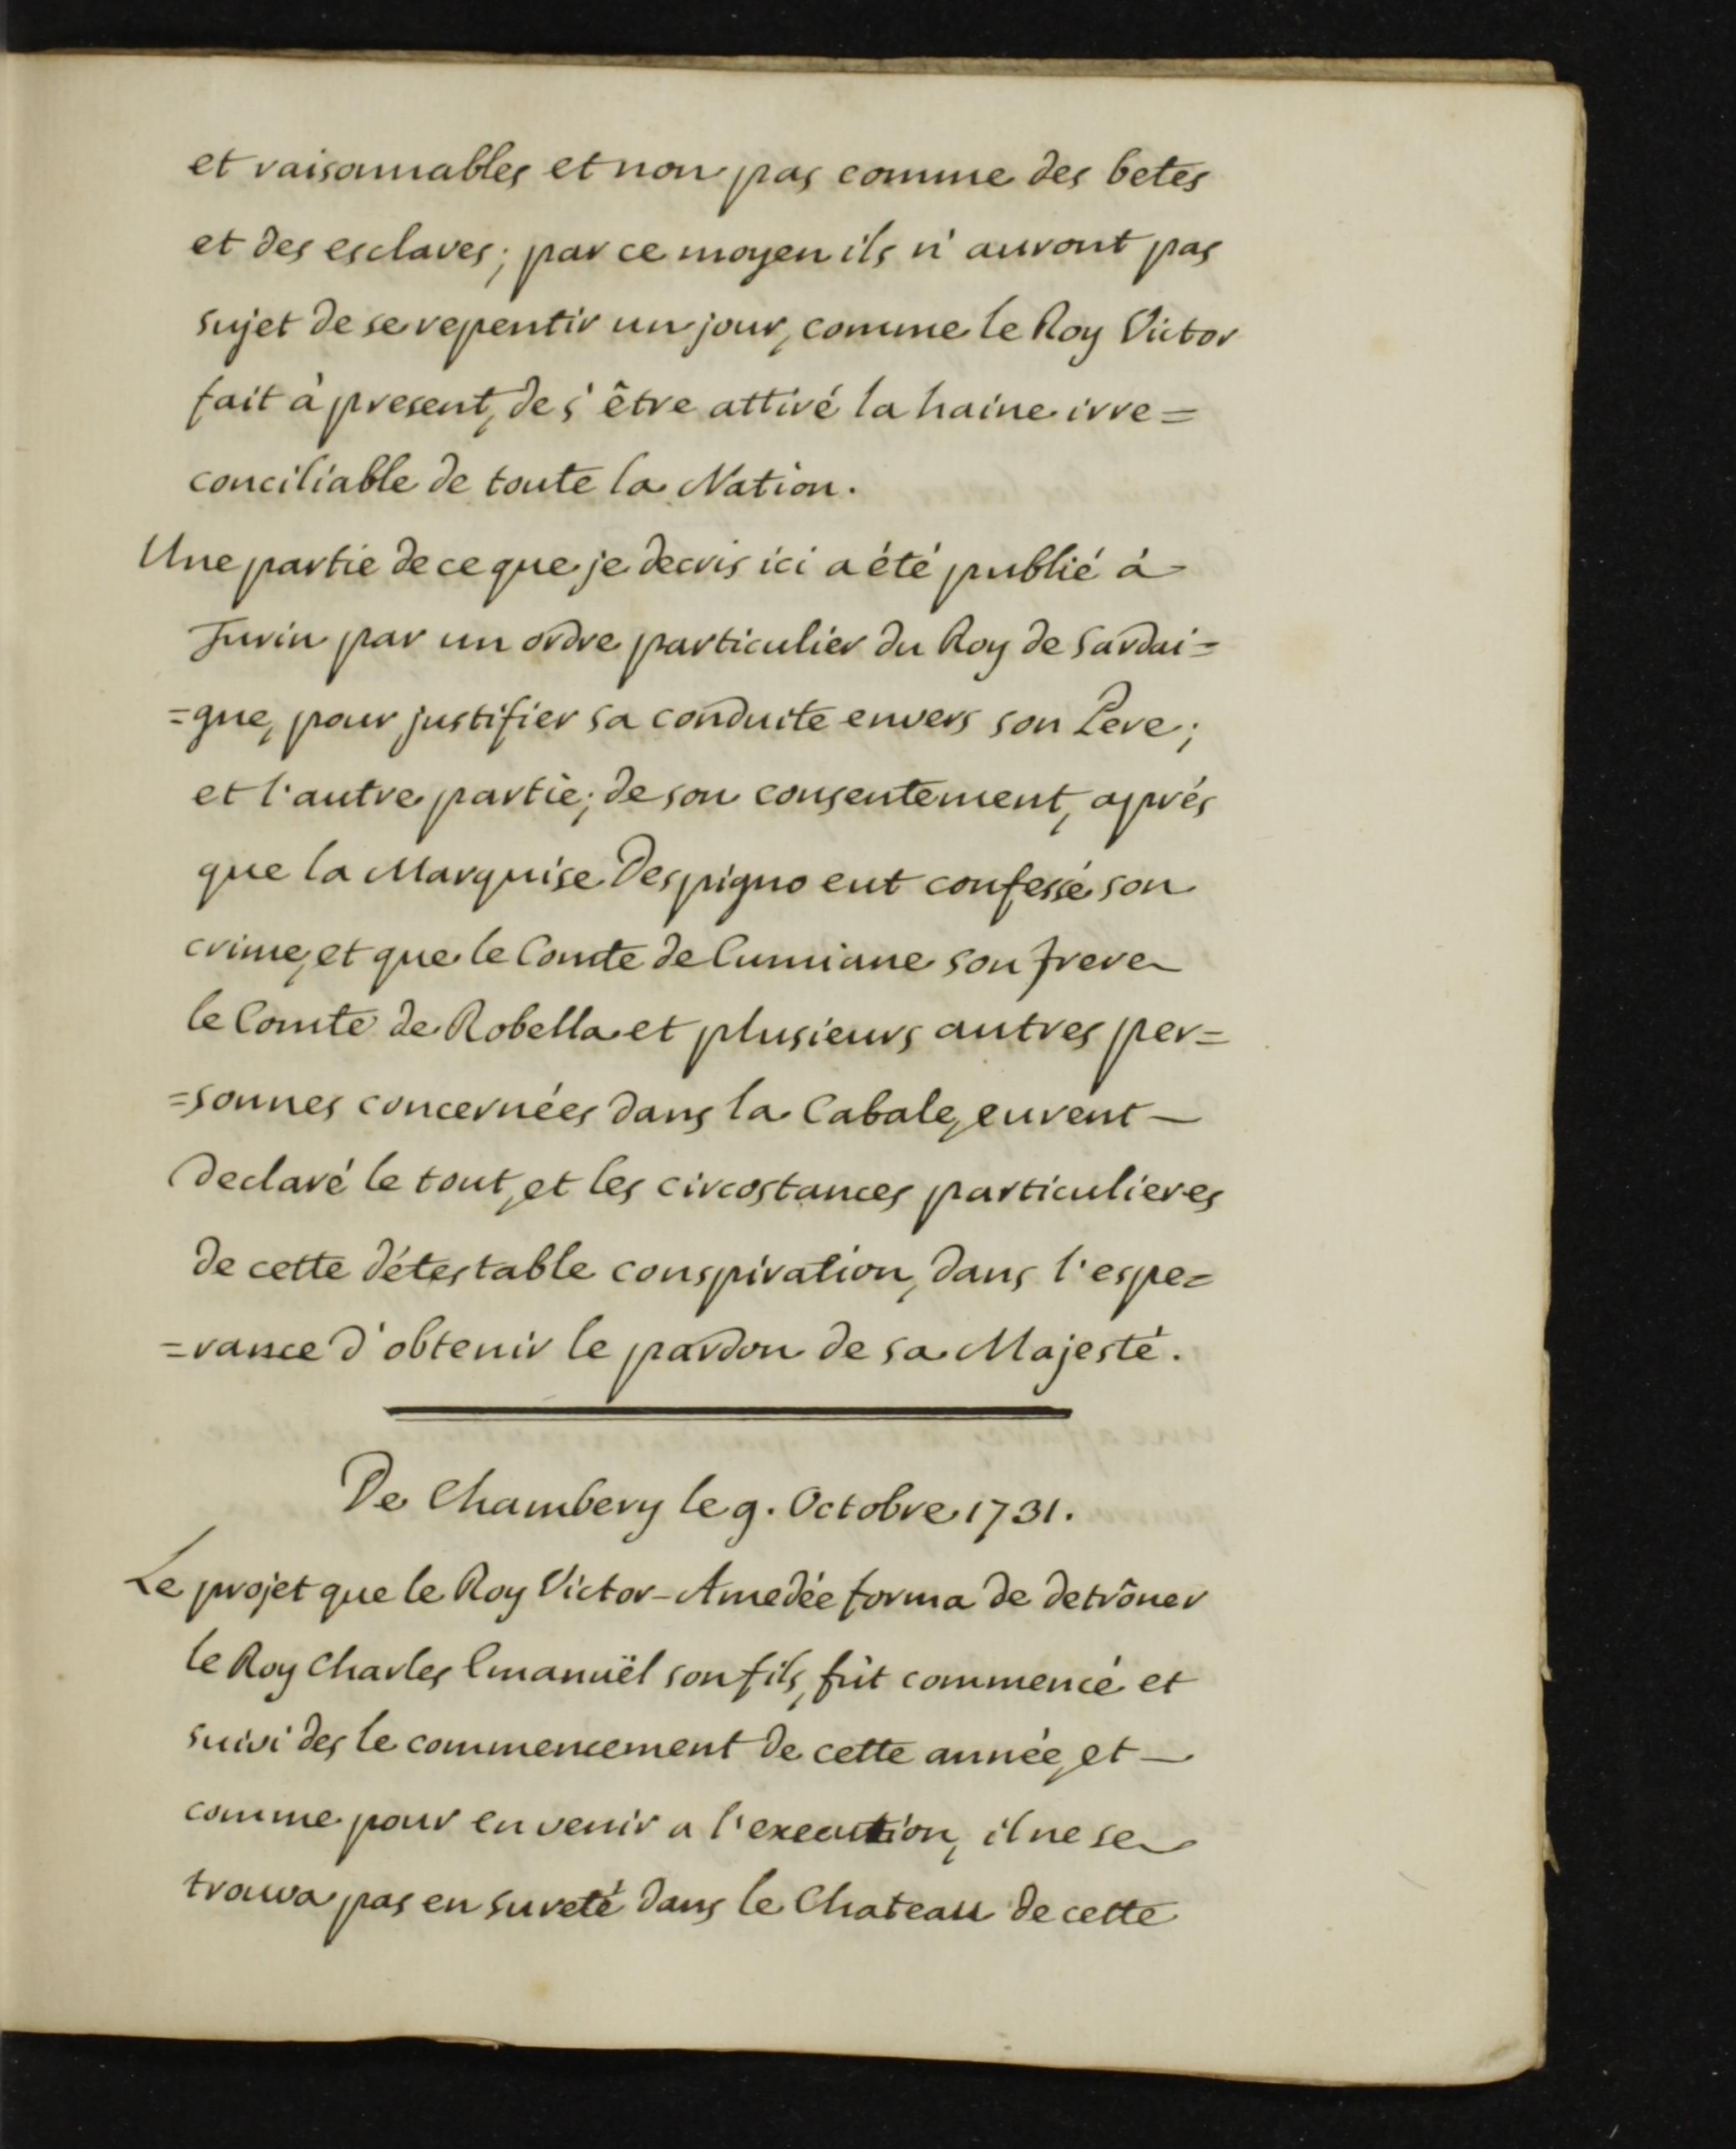 et raisonnables et non pas comme des betes
et des esclaves; par ce moyen ils n'auront pas
sujet de se repentir un jour, comme le Roy Victor
fait à present, de s'être attiré la haine irre=
conciliable de toute la Nation.
Une partie de ce que je decris ici a été publié à
Turin par un ordre particulier du Roy de Sardai=
=gne, pour justifier sa conduite envers son Pere;
et l'autre partie; de son consentement, aprés
que la Marquise Despigno eut confessé son
crime, et que le Comte de Cumiane son frere
le Comte de Robella et plusieurs autres per=
=sonnes concernées dans la Cabale, eurent —
declaré le tout, et les circostances particulieres
de cette détestable conspiration, dans l'espe=
=rance d'obtenir le pardon de sa Majesté.
De Chambery le 9. Octobre 1731.
Le projet que le Roy Victor-Amedée forma de detrôner
le Roy Charles Emanuël son fils, fût commencé et
suivi des le commencement de cette année, et —
comme pour en venir a l'execution, il ne se
trouva pas en sureté dans le Chateau de cette